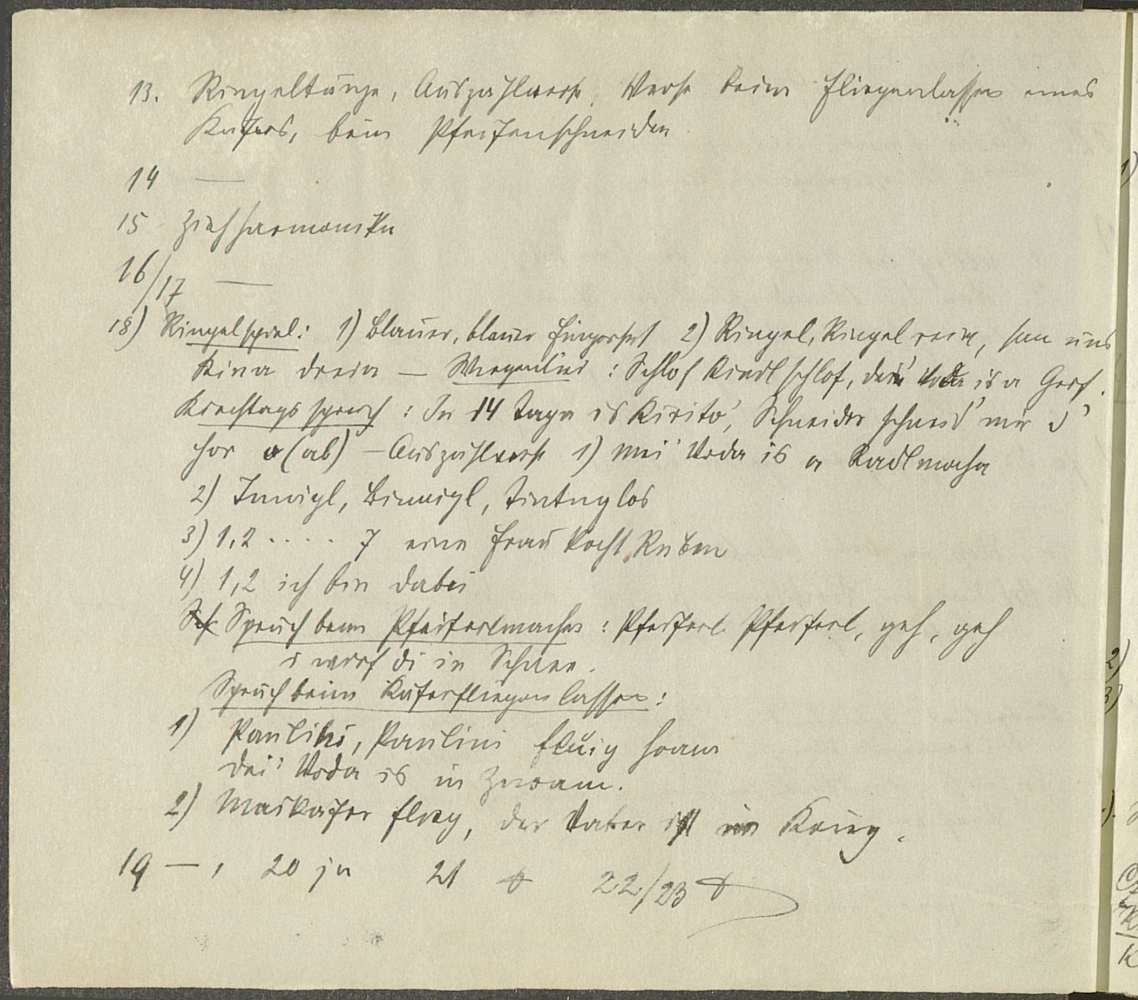 13. Ringeltänze, Auszählverse, Verse beim Fliegenlassen eines
Käfers, beim Pfeifenschneiden
14 —
15 Ziehharmonika
16/17 —
18) Ringelspiel: 1) Blauer, blauer Fingerhut 2) Ringel, Ringel reia, san uns
Kina dreia — Wiegenlied: Schlof Kindl schlof, dei' Voda is a Grof.
Kirchtagsspruch: In 14 Tagn is Kirito', Schneider schneid' mir d'
Hor o (ab) — Auszählverse 1) Mei' Voda is a Radlmacha
2) Innigl, Binnigl, Tintnglos
3) 1, 2 ..... 7 eine Frau kocht Ruben
4) 1, 2 ich bin dabei
Spruch beim Pfeiferlmachen: Pfeiferl Pfeiferl, geh, geh
i wirf di in Schnee.
Spruch beim Käferfliegenlassen:
1) Paulini, Paulini fluig hoam
Dei' Voda is in Znoam.
2) Maikäfer flieg, der Vater ist im Krieg.
19 — , 20 ja 21 22/23